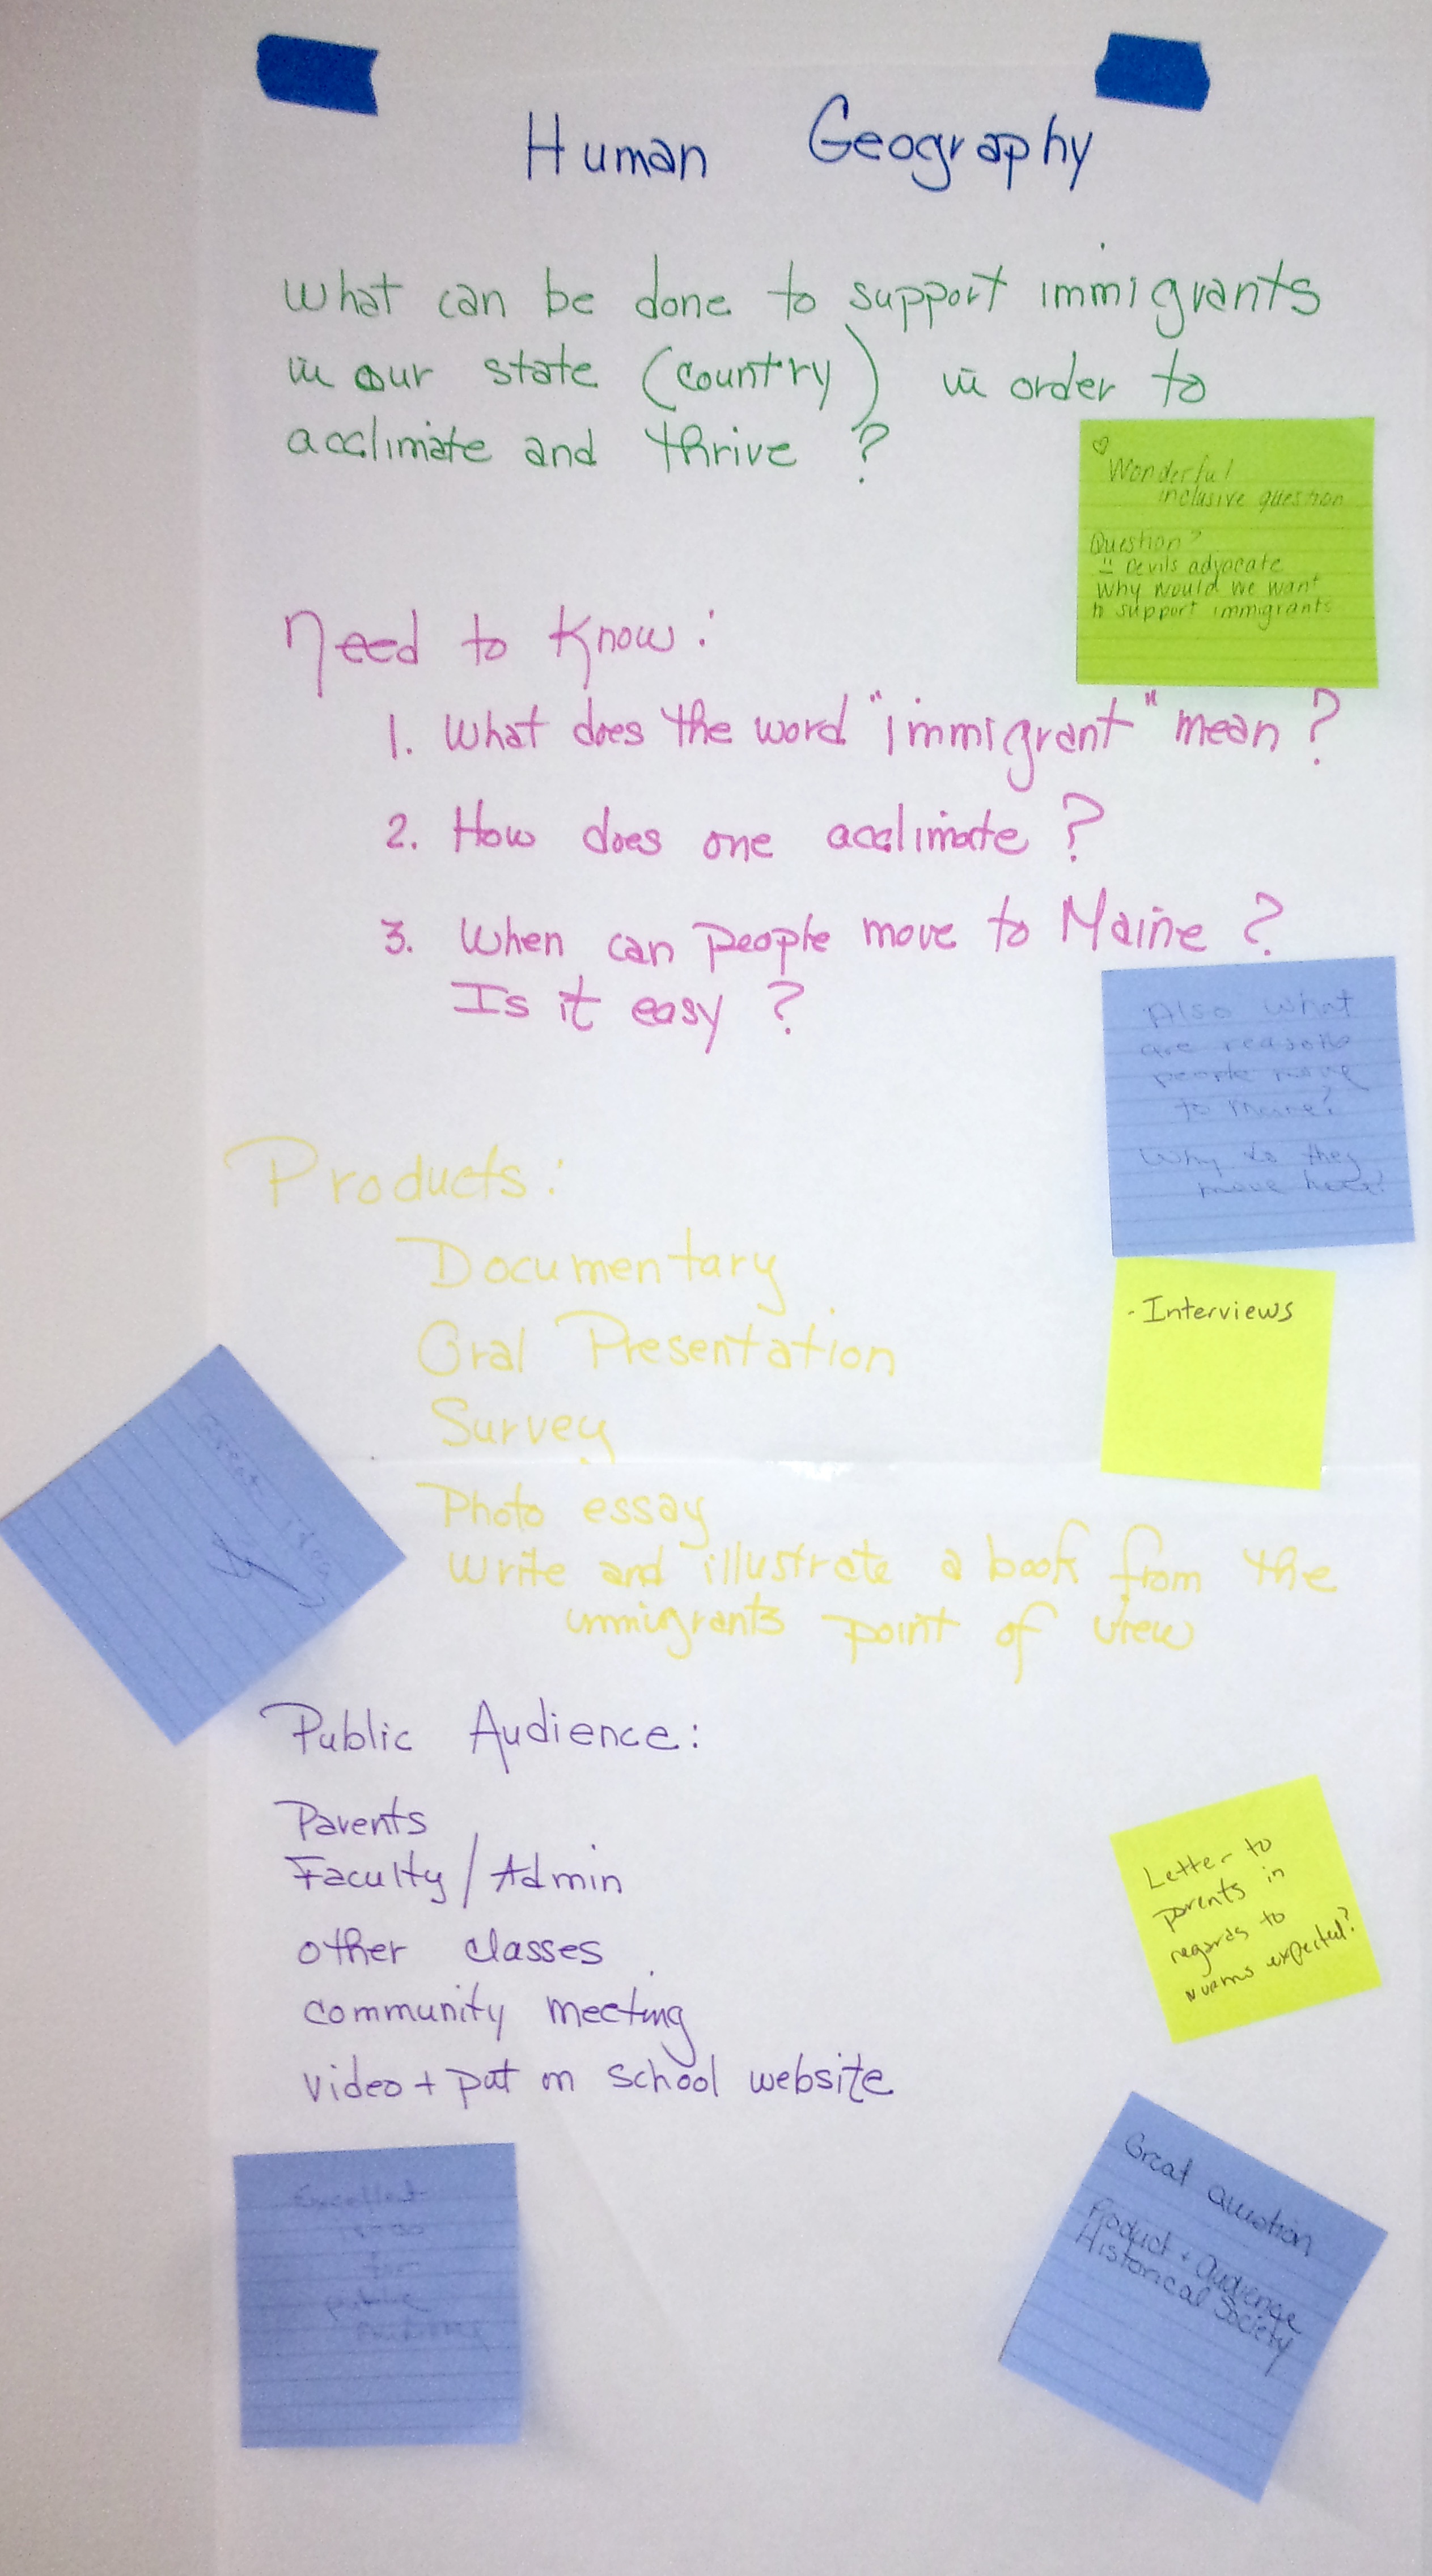 Human Geography
What can be done to support immigrants
in our state (country) in order to
acclimate and thrive ?
♡
Wonderful
inclusive question
Question?
Devils advocate
Why would we want
to support immigrants
Need to Know:
1. What does the word "immigrant" mean ?
2. How does one acclimate ?
3. When can people move to Maine ?
Is it easy ?
Also what
are reasons
people move
to Maine?
Why do they
move here?
Products:
Documentary
Oral Presentation
Survey
Photo essay
Write and illustrate a book from the
immigrants point of view
- Interviews
Great idea
Public Audience:
Parents
Faculty / Admin
other classes
community meeting
video + put on school website
Letter to
parents in
regards to
norms expected?
Excellent
ideas
for
public
Great Question
Product + Audience
Historical Society